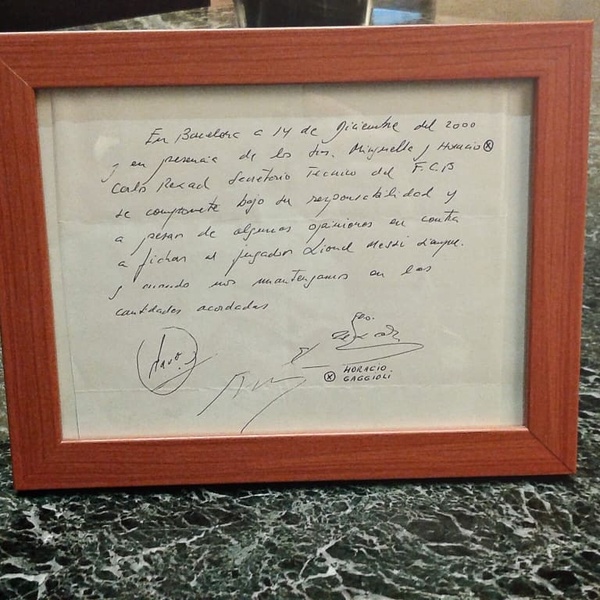 En Barcelona a 14 de Diciembre del 2000
y en presencia de los Sres. Minguella y Horacio ⊗
Carles Rexach Secretario Técnico del F.C.B
se compromete bajo su responsabilidad y
a pesar de algunas opiniones en contra
a fichar al jugador Lionel Messi siempre
y cuando nos mantengamos en las
cantidades acordadas
⊗ HORACIO
GAGGIOLI